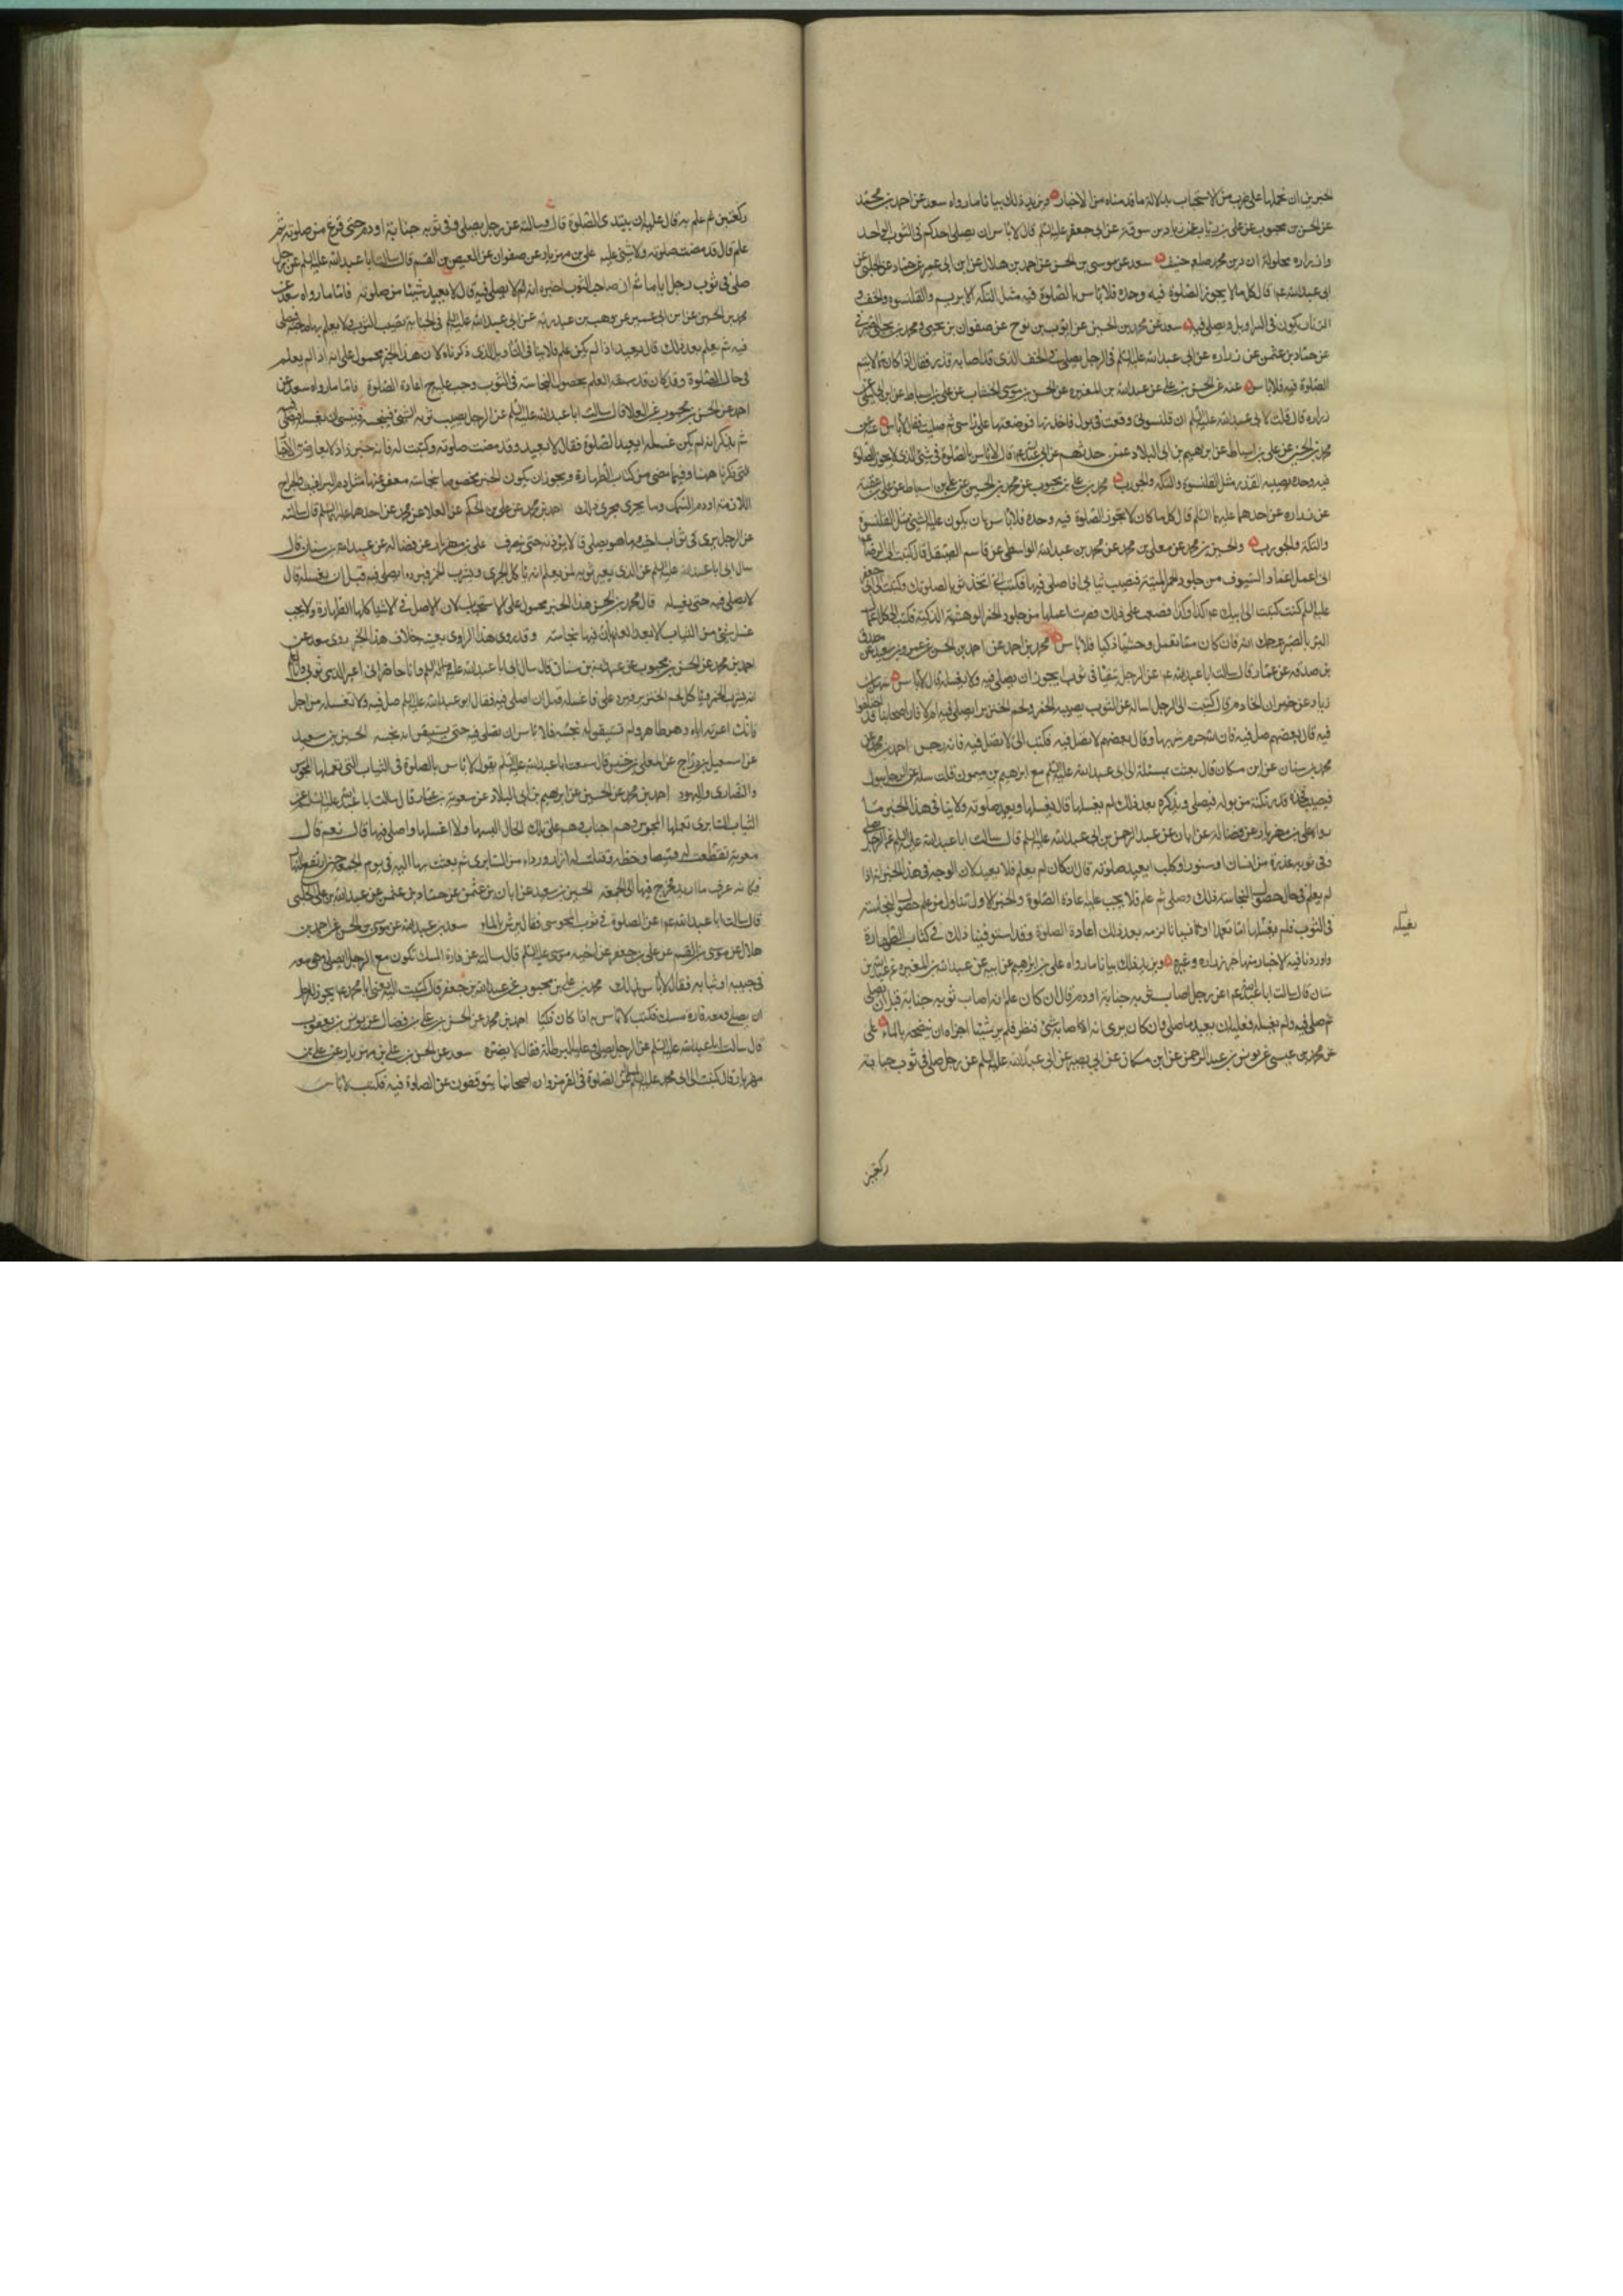 الخبرين ان نحملها على ضرب من الاستحباب بدلالة ما قدمناه من الاخبار ويزيد ذلك بيانا ما رواه سعد عن احمد بن محمد
عن الحسن بن محبوب عن علي بن رئاب عن زياد بن سوقة عن ابي جعفر عليه السلم قال لا باس ان يصلي احدكم في الثوب الواحد
وازراره محلولة ان دين محمد صلعم حنيف سعد عن موسى بن الحسن عن احمد بن هلال عن ابن ابي عمير عن حماد عن الحلبي عن
ابي عبد الله ع قال كل ما لا يجوز الصلوة فيه وحده فلا باس بالصلوة فيه مثل التكة الابريسم والقلنسوة والخف و
الزنار يكون في السراويل ويصلي فيه سعد عن محمد بن الحسين عن ايوب بن نوح عن صفوان بن يحيى
عن حماد بن عثمن عن زرارة عن ابي عبد الله عليه السلم في الرجل يصلي في الخف الذي قد اصابه قذر فقال اذا كان مما لا يتم
الصلوة فيه فلا باس عنه عن الحسن بن علي عن عبد الله بن المغيرة عن الحسن بن موسى الخشاب عن علي بن اسباط عن ابن ابي ليلى عن
زرارة قال قلت لابي عبد الله عليه السلم ان قلنسوتي وقعت في بول فاخذتها فوضعتها على راسي ثم صليت فقال لا باس
محمد بن الحسين عن علي بن اسباط عن ابرهيم بن ابي البلاد عمن حدثهم عن ابي عبد الله ع قال لا باس بالصلوة في شئ الذي لا يجوز الصلوة
فيه وحده يصيبه القذر مثل القلنسوة والتكة والجورب محمد بن علي بن محبوب عن محمد بن الحسين عن علي بن اسباط عن علي بن عقبة
عن زرارة عن احدهما عليهما السلم قال كل ما كان لا تجوز الصلوة فيه وحده فلا باس بان يكون عليه الشئ مثل القلنسوة
والتكة والجورب والحسين بن محمد عن معلى بن محمد عن محمد بن عبد الله الواسطي عن قاسم الصيقل قال كتبت الى الرضا ع
اني اعمل اغماد السيوف من جلود الحمر الميتة فيصيب ثيابي افاصلي فيها فكتب الي اتخذ ثوبا لصلوتك وكتبت الى ابي جعفر
عليه السلم كنت كتبت الى ابيك ع كذا وكذا فصعب علي ذلك فصرت اعملها من جلود الحمر الوحشية الذكية فكتب الي كل اعمال
البر بالصبر يرحمك الله فان كان مما تعمل وحشيا ذكيا فلا باس محمد بن احمد عن احمد بن الحسن عن عمرو بن سعيد عن مصدق
بن صدقة عن عمار قال سالت ابا عبد الله ع عن الرجل يتقيأ في ثوبه يجوز ان يصلي فيه ولا يغسله قال لا باس سهل بن
زياد عن خيران الخادم قال كتبت الى الرجل اساله عن الثوب يصيبه الخمر ولحم الخنزير ايصلي فيه ام لا فان اصحابنا قد اختلفوا
فيه فقال بعضهم صل فيه فان الله حرم شربها وقال بعضهم لا تصل فيه فكتب الي لا تصل فيه فانه رجس احمد بن محمد عن
محمد بن سنان عن ابن مسكان قال بعثت بمسئلة الى ابي عبد الله عليه السلم مع ابرهيم بن ميمون قلت سله عن الرجل يبول
فيصيب فخذه قدر نكتة من بوله فيصلي ويذكره بعد ذلك لم يغسلها قال يغسلها ويعيد صلوته ولا ينافي هذا الخبر ما
رواه علي بن مهزيار عن فضالة عن ابان عن عبد الرحمن بن ابي عبد الله عليه السلم قال سالت ابا عبد الله عليه السلم عن الرجل يصلي
وفي ثوبه عذرة من انسان او سنور او كلب ايعيد صلوته قال ان كان لم يعلم فلا يعيد لان الوجه في هذا الخبر انه اذا
لم يعلم في حال حصول النجاسة ذلك وصلى ثم علم فلا يجب عليه اعادة الصلوة والخبر الاول تناول من علم حصول النجاسة
في الثوب فلم يغسلها اما تعمدا او نسيانا لزمه بعد ذلك اعادة الصلوة وقد استوفينا ذلك في كتاب الطهارة
واوردنا فيه الاخبار منها خبر زرارة وغيره ويزيد ذلك بيانا ما رواه علي بن ابرهيم عن ابيه عن عبد الله بن المغيرة عن عبد الله بن
سنان قال سالت ابا عبد الله ع عن رجل اصاب ثوبه جنابة او دم قال ان كان علم انه اصاب ثوبه جنابة قبل ان يصلي
ثم صلى فيه ولم يغسله فعليه ان يعيد ما صلى وان كان يرى انه اصابه شئ فنظر فلم ير شيئا اجزاه ان ينضحه بالماء علي
عن محمد بن عيسى عن يونس بن عبد الرحمن عن ابن مسكان عن ابي بصير عن ابي عبد الله عليه السلم عن رجل صلى في ثوب جنابة
ركعتين
يغسله
ركعتين ثم علم به قال عليه ان يبتدئ الصلوة قال وسالته عن رجل يصلي وفي ثوبه جنابة او دم حتى فرغ من صلوته ثم
علم قال قد مضت صلوته ولا شئ عليه علي بن مهزيار عن صفوان عن العيص بن القسم قال سالت ابا عبد الله عليه السلم عن رجل
صلى في ثوب رجل اياما ثم ان صاحب الثوب اخبره انه لا يصلي فيه قال لا يعيد شيئا من صلوته فاما ما رواه سعد عن
محمد بن الحسين عن ابن ابي عمير عن وهب بن عبد ربه عن ابي عبد الله عليه السلم في الجنابة تصيب الثوب ولا يعلم بها صاحبه فيصلي
فيه ثم يعلم بعد ذلك قال يعيد اذا لم يكن علم فلا ينافي التاويل الذي ذكرناه لان هذا الخبر محمول على انه اذا لم يعلم
في حال الصلوة وقد كان قد سبقه العلم بحصول النجاسة في الثوب وجب عليه ح اعادة الصلوة فاما ما رواه سعد عن
احمد عن الحسن بن محبوب عن العلا قال سالت ابا عبد الله عليه السلم عن الرجل يصيب ثوبه الشئ فينجسه فينسى ان يغسله فيصلي فيه
ثم يذكر انه لم يكن غسله ايعيد الصلوة فقال لا يعيد وقد مضت صلوته وكتبت له فانه خبر شاذ لا يعارض الاخبار
التي ذكرنا ههنا وفيما مضى من كتاب الطهارة ويجوز ان يكون الخبر مخصوصا بنجاسة معفو عنها مثل دم البراغيث والجراح
اللازمة او دم السمك وما يجري مجرى ذلك احمد بن محمد عن علي بن الحكم عن العلا عن محمد عن احدهما عليهما السلم قال سالته
عن الرجل يرى في ثوب اخيه دما وهو يصلي قال لا يؤذنه حتى ينصرف علي بن مهزيار عن فضالة عن عبد الله بن سنان قال
سال ابي ابا عبد الله عليه السلم عن الذي يعير ثوبه لمن يعلم انه ياكل الجري ويشرب الخمر فيرده ايصلي فيه قبل ان يغسله قال
لا يصلي فيه حتى يغسله قال محمد بن الحسن هذا الخبر محمول على الاستحباب لان الاصل في الاشياء كلها الطهارة ولا يجب
غسل شئ من الثياب الا بعد العلم بان فيها نجاسة وقد روى هذا الراوي بعينه خلاف هذا الخبر روى سعد عن
احمد بن محمد عن الحسن بن محبوب عن عبد الله بن سنان قال سال ابي ابا عبد الله عليه السلم وانا حاضر اني اعير الذمي ثوبي وانا اعلم
انه يشرب الخمر وياكل لحم الخنزير فيرده علي فاغسله قبل ان اصلي فيه فقال ابو عبد الله عليه السلم صل فيه ولا تغسله من اجل
فانك اعرته اياه وهو طاهر ولم تستيقن انه نجسه فلا باس ان تصلي فيه حتى تستيقن انه نجسه الحسين بن سعيد
عن المعلى بن خنيس قال سمعت ابا عبد الله عليه السلم يقول لا باس بالصلوة في الثياب التي تعملها المجوس
والنصارى واليهود احمد بن محمد عن الحسين عن ابرهيم بن ابي البلاد عن معوية بن عمار قال سالت ابا عبد الله عليه السلم عن
الثياب السابرية تعملها المجوس وهم اجناب وهم على تلك الحال البسها ولا اغسلها واصلي فيها قال نعم قال
معوية فقطعت له قميصا وخطته وفتلت له ازارا ورداء من السابري ثم بعثت بها اليه في يوم الجمعة حين ارتفع النهار
فكانه عرف ما اريد فخرج فيها الى الجمعة الحسين بن سعيد عن ابان بن عثمن عن حماد بن عثمن عن عبيد الله بن علي الحلبي
قال سالت ابا عبد الله ع عن الصلوة في ثوب المجوسي فقال يرش بالماء سعد بن عبد الله عن موسى بن الحسن عن احمد بن
هلال عن موسى بن القسم عن علي بن جعفر عن اخيه موسى عليه السلم قال سالته عن فارة المسك تكون مع الرجل يصلي وهي معه
في جيبه او ثيابه فقال لا باس بذلك محمد بن علي بن محبوب عن عبد الله بن جعفر قال كتبت اليه يعني ابا محمد ع يجوز للرجل
ان يصلي ومعه فارة مسك فكتب لا باس به اذا كان ذكيا احمد بن محمد عن الحسن بن علي بن فضال عن يونس بن يعقوب
قال سالت ابا عبد الله عليه السلم عن الرجل يصلي وعليه البرطلة فقال لا يضره سعد عن الحسن بن علي بن مهزيار عن علي بن
مهزيار قال كتبت الى ابي محمد عليه السلم عن الصلوة في القرمز وان اصحابنا يتوقفون عن الصلوة فيه فكتب لا باس